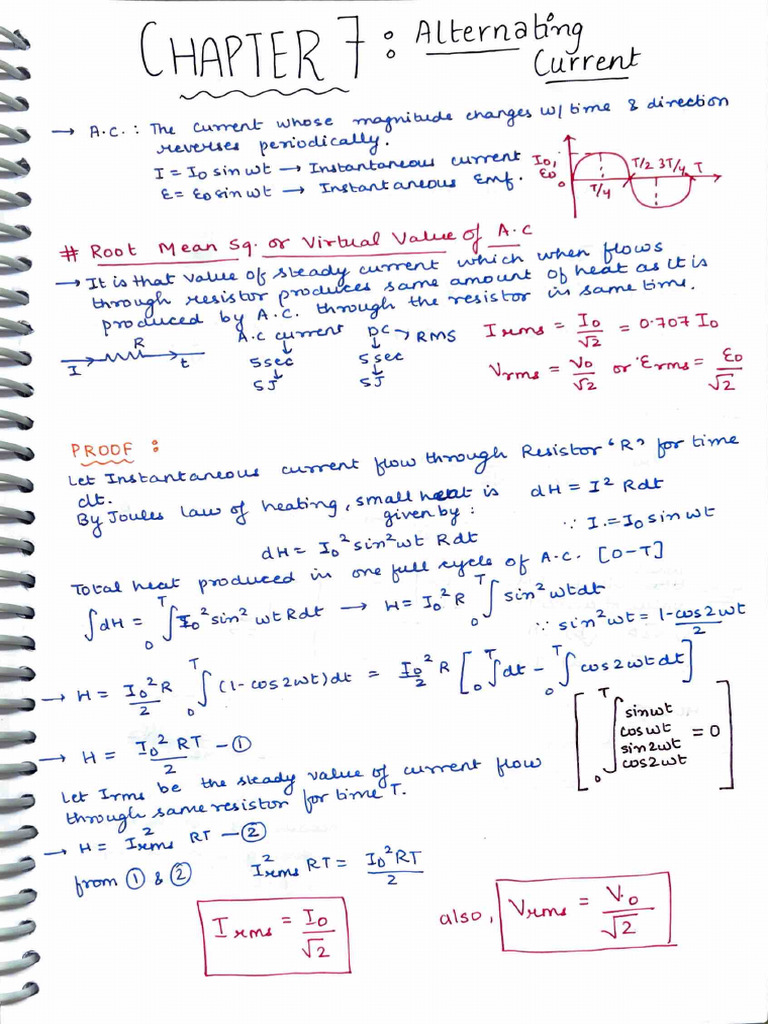 CHAPTER 7: Alternating Current
→ A.C.: The current whose magnitude changes w/ time & direction
reverses periodically.
I = I₀ sin wt → Instantaneous current
Ɛ = Ɛ₀ sin wt → Instantaneous Emf.
I₀, Ɛ₀
0 T/4 T/2 3T/4 T
# Root Mean Sq. or Virtual Value of A.C
→ It is that value of steady current which when flows
through resistor produces same amount of heat as it is
produced by A.C. through the resistor in same time.
R
I t
A.C current DC → RMS
↓ ↓
5sec 5sec
↓ ↓
5J 5J
Irms = I₀/√2 = 0.707 I₀
Vrms = V₀/√2 or Ɛrms = Ɛ₀/√2
PROOF :
Let Instantaneous current flow through Resistor 'R' for time
dt.
By Joules law of heating, small heat is given by: dH = I² Rdt
dH = I₀² sin² wt Rdt ∵ I = I₀ sin wt
Total heat produced in one full cycle of A.C. [0-T]
∫dH = ₀∫ᵀ I₀² sin² wt Rdt → H = I₀² R ₀∫ᵀ sin² wt dt
∵ sin² wt = 1-cos2wt/2
→ H = I₀²R/2 ₀∫ᵀ (1-cos2wt)dt = I₀²R/2 [₀∫ᵀ dt - ₀∫ᵀ cos2wtdt]
[₀∫ᵀ sinwt
coswt
sin2wt
cos2wt = 0]
→ H = I₀² RT/2 - ①
Let Irms be the steady value of current flow
through same resistor for time T.
→ H = I²rms RT - ②
from ① & ② I²rms RT = I₀²RT/2
Irms = I₀/√2
also, Vrms = V₀/√2